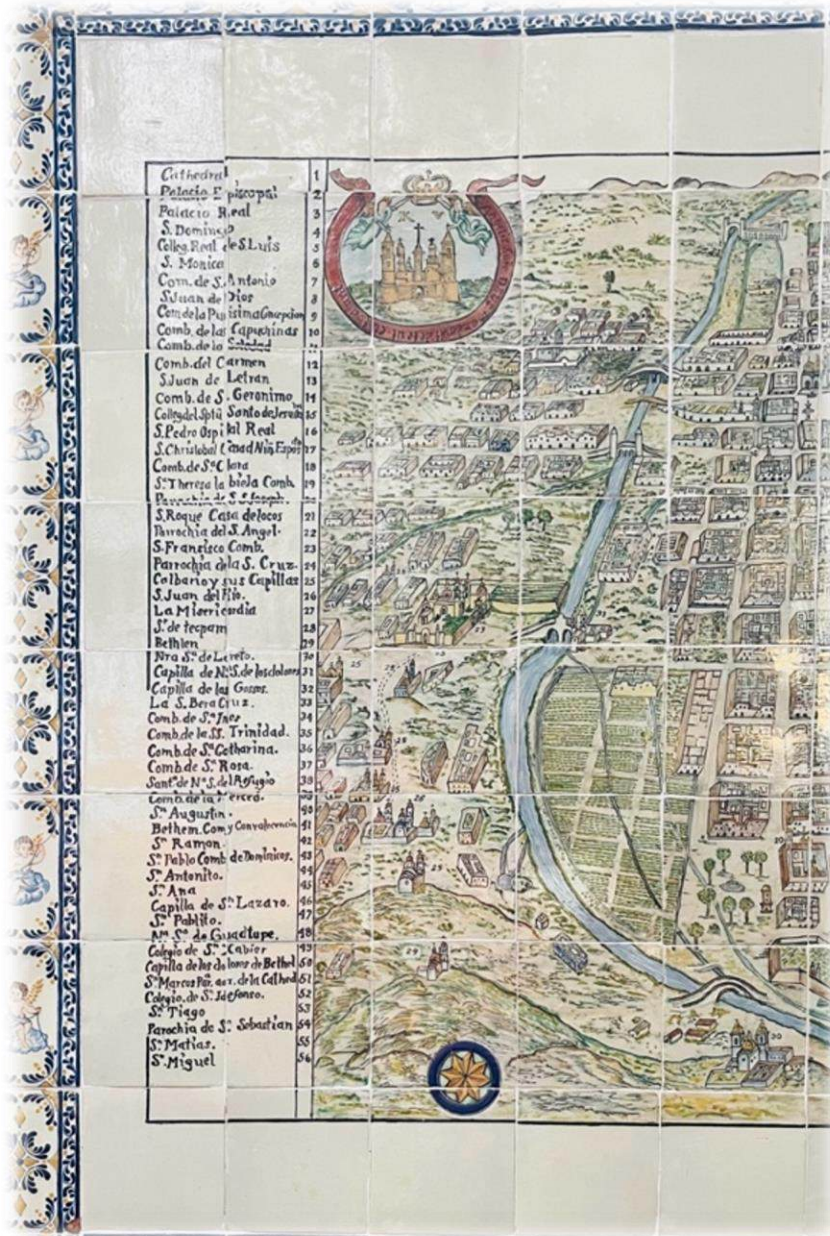 Cathedral 1
Palacio Episcopal 2
Palacio Real 3
S. Domingo 4
Colleg. Real de S. Luis 5
S. Monica 6
Com. de S. Antonio 7
S. Juan de Dios 8
Com de la Purisima Concepcion 9
Comb. de las Capuchinas 10
Comb. de la Soledad 11
Comb. del Carmen 12
S. Juan de Letran 13
Comb. de S. Geronimo 14
Colleg del Sptu Santo de 15
S. Pedro Ospital Real 16
S. Christobal 17
Comb. de Sa. Clara 18
Sa. Theresa la bieja Comb. 19
Parrochia de S. Joseph. 20
S. Roque Casa de locos 21
Parrochia del S. Angel. 22
S. Francisco Comb. 23
Parrochia de la S. Cruz. 24
Calbario y sus Capillas 25
S. Juan del Rio. 26
La Misericordia 27
de tecpam 28
Bethlen 29
Nra Sa. de Loreto. 30
Capilla de Na. S. de los dolores 31
Capilla de las Gosos. 32
La S. Bera Cruz. 33
Comb. de Sa. Ines 34
Comb. de la SS. Trinidad. 35
Comb. de Sa. Catharina. 36
Comb. de Sa. Rosa. 37
Sant. de Na. S. del Refugio 38
Comb. de la Merced. 39
Sn. Augustin. 40
Bethem. Com y Convalecencia 41
Sn Ramon. 42
Sn. Pablo Comb. de Dominicos. 43
Sn. Antonito. 44
Sa. Ana 45
Capilla de Sn. Lazaro. 46
Sn. Pablito. 47
Na. Sa. de Guadlupe. 48
Colegio de Sn. Xabier 49
Capilla de los dolores de Bethel 50
Sn. Marcos Par. de la Cathed 51
Colegio. de Sn. Idefonso. 52
Sn. Tiago 53
Parochia de Sn. Sebastian 54
Sn. Matias. 55
Sn. Miguel 56
25
28
26
29
30